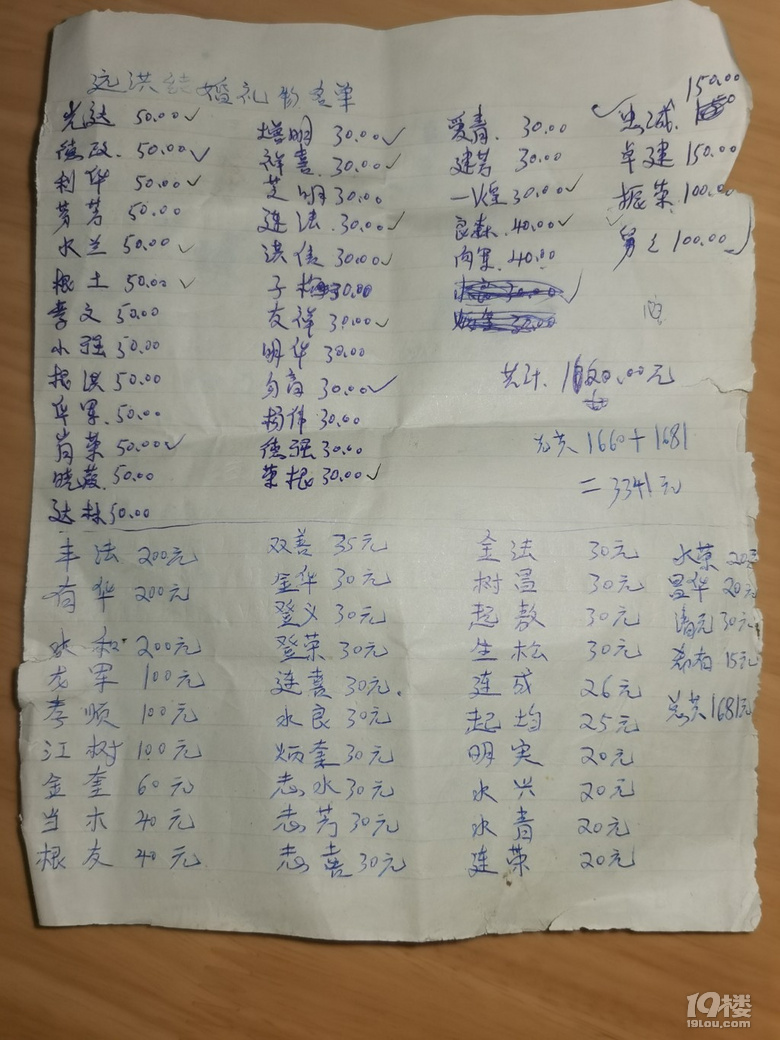 远洪结婚礼物名单
光达 50.00✓
德政. 50.00✓
利华 50.00✓
芳芳 50.00
水兰 50.00✓
根土 50.00✓
孝文 50.00
小强 50.00
振洪 50.00
华军. 50.00
尚荣 50.00✓
晓薇. 50.00
达林 50.00
增明 30.00✓
祥喜. 30.00✓
芝明 30.00
连法. 30.00✓
洪信 30.00✓
子梅 30.00
友祥 30.00✓
明华 30.00
30.00✓
杨伟 30.00
德强 30.00
荣根 30.00✓
爱青. 30.00
建芳 30.00
一煌 30.00✓
良森. 40.00✓
向军. 40.00
共计. 1660.00元
忠诚. 150.00
卓建 150.00
振荣. 100.00
100.00
总共 1660+1681
=3341元
丰法 200元
有华 200元
水和 200元
龙军 100元
孝顺 100元
江树 100元
金奎 60元
当木 40元
根友 40元
双善 35元
金华 30元
登义 30元
登荣 30元
连喜 30元.
水良 30元
炳奎 30元
志水 30元
志芳 30元
志喜 30元
金法 30元
树昌 30元
起敖 30元
生松 30元
连成 26元
起均 25元
明实 20元
水兴 20元
水青 20元
连荣 20元
水荣 20元
昌华 20元
清元 30元
15元
总共 1681元
19楼
19lou.com